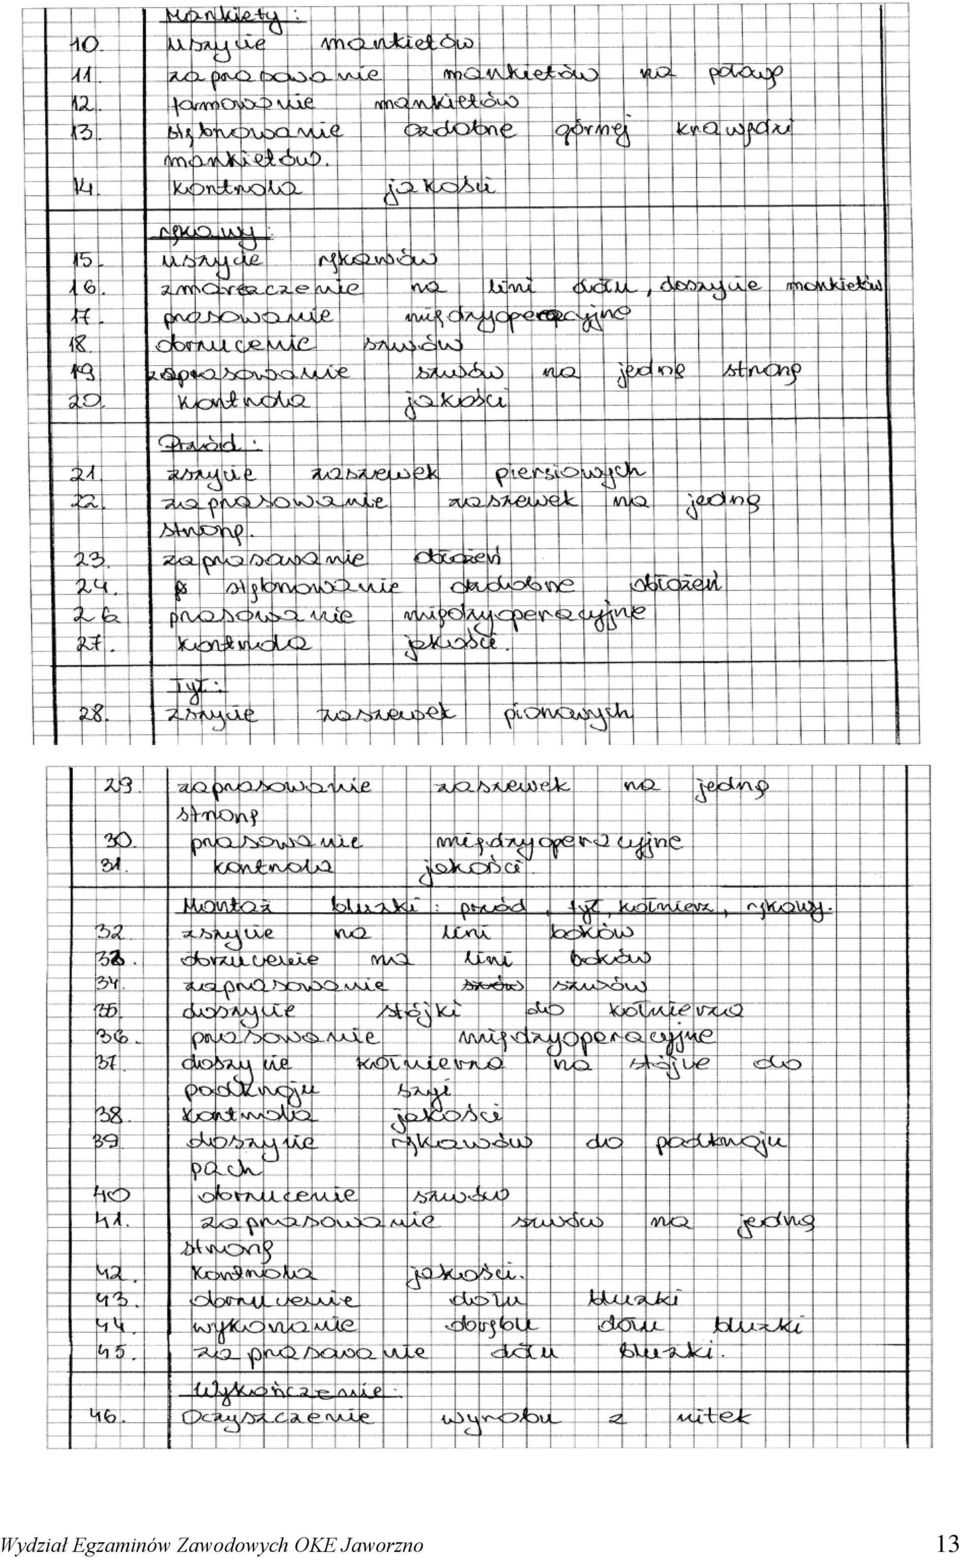 Mankiety:
10. uszycie mankietów
11. zaprasowanie mankietów na połowę
12. formowanie mankietów
13. stębnowanie ozdobne górnej krawędzi
mankietów.
14. kontrola jakości
rękawy:
15. uszycie rękawów
16. zmarszczenie na lini dołu, doszycie mankietów
17. prasowanie międzyoperacyjne
18. obrzucenie szwów
19 zaprasowanie szwów na jedną stronę
20. kontrola jakości
Przód:
21. zszycie zaszewek piersiowych
22. zaprasowanie zaszewek na jedną
stronę.
23. zaprasowanie obłożeń
24. stębnowanie ozdobne obłożeń
26 prasowanie międzyoperacyjne
27. kontrola jakości.
Tył:
28. zszycie zaszewek pionowych
29. zaprasowanie zaszewek na jedną
stronę
30. prasowanie międzyoperacyjne
31. kontrola jakości.
Montaż bluzki: przód, tył, kołnierz, rękawy.
32. zszycie na lini boków
33. obrzucenie na lini boków
34. zaprasowanie szwów
35. doszycie stójki do kołnierza
36. prasowanie międzyoperacyjne
37. doszycie kołnierza na stójce do
podkroju szyi
38. kontrola jakości
39 doszycie rękawów do podkroju
pach
40 obrzucenie szwów
41. zaprasowanie szwów na jedną
stronę
42. kontrola jakości.
43. obrzucenie dołu bluzki
44. wykonanie obrębu dołu bluzki
45. zaprasowanie dołu bluzki.
Wykończenie:
46. Oczyszczenie wyrobu z nitek
Wydział Egzaminów Zawodowych OKE Jaworzno 13